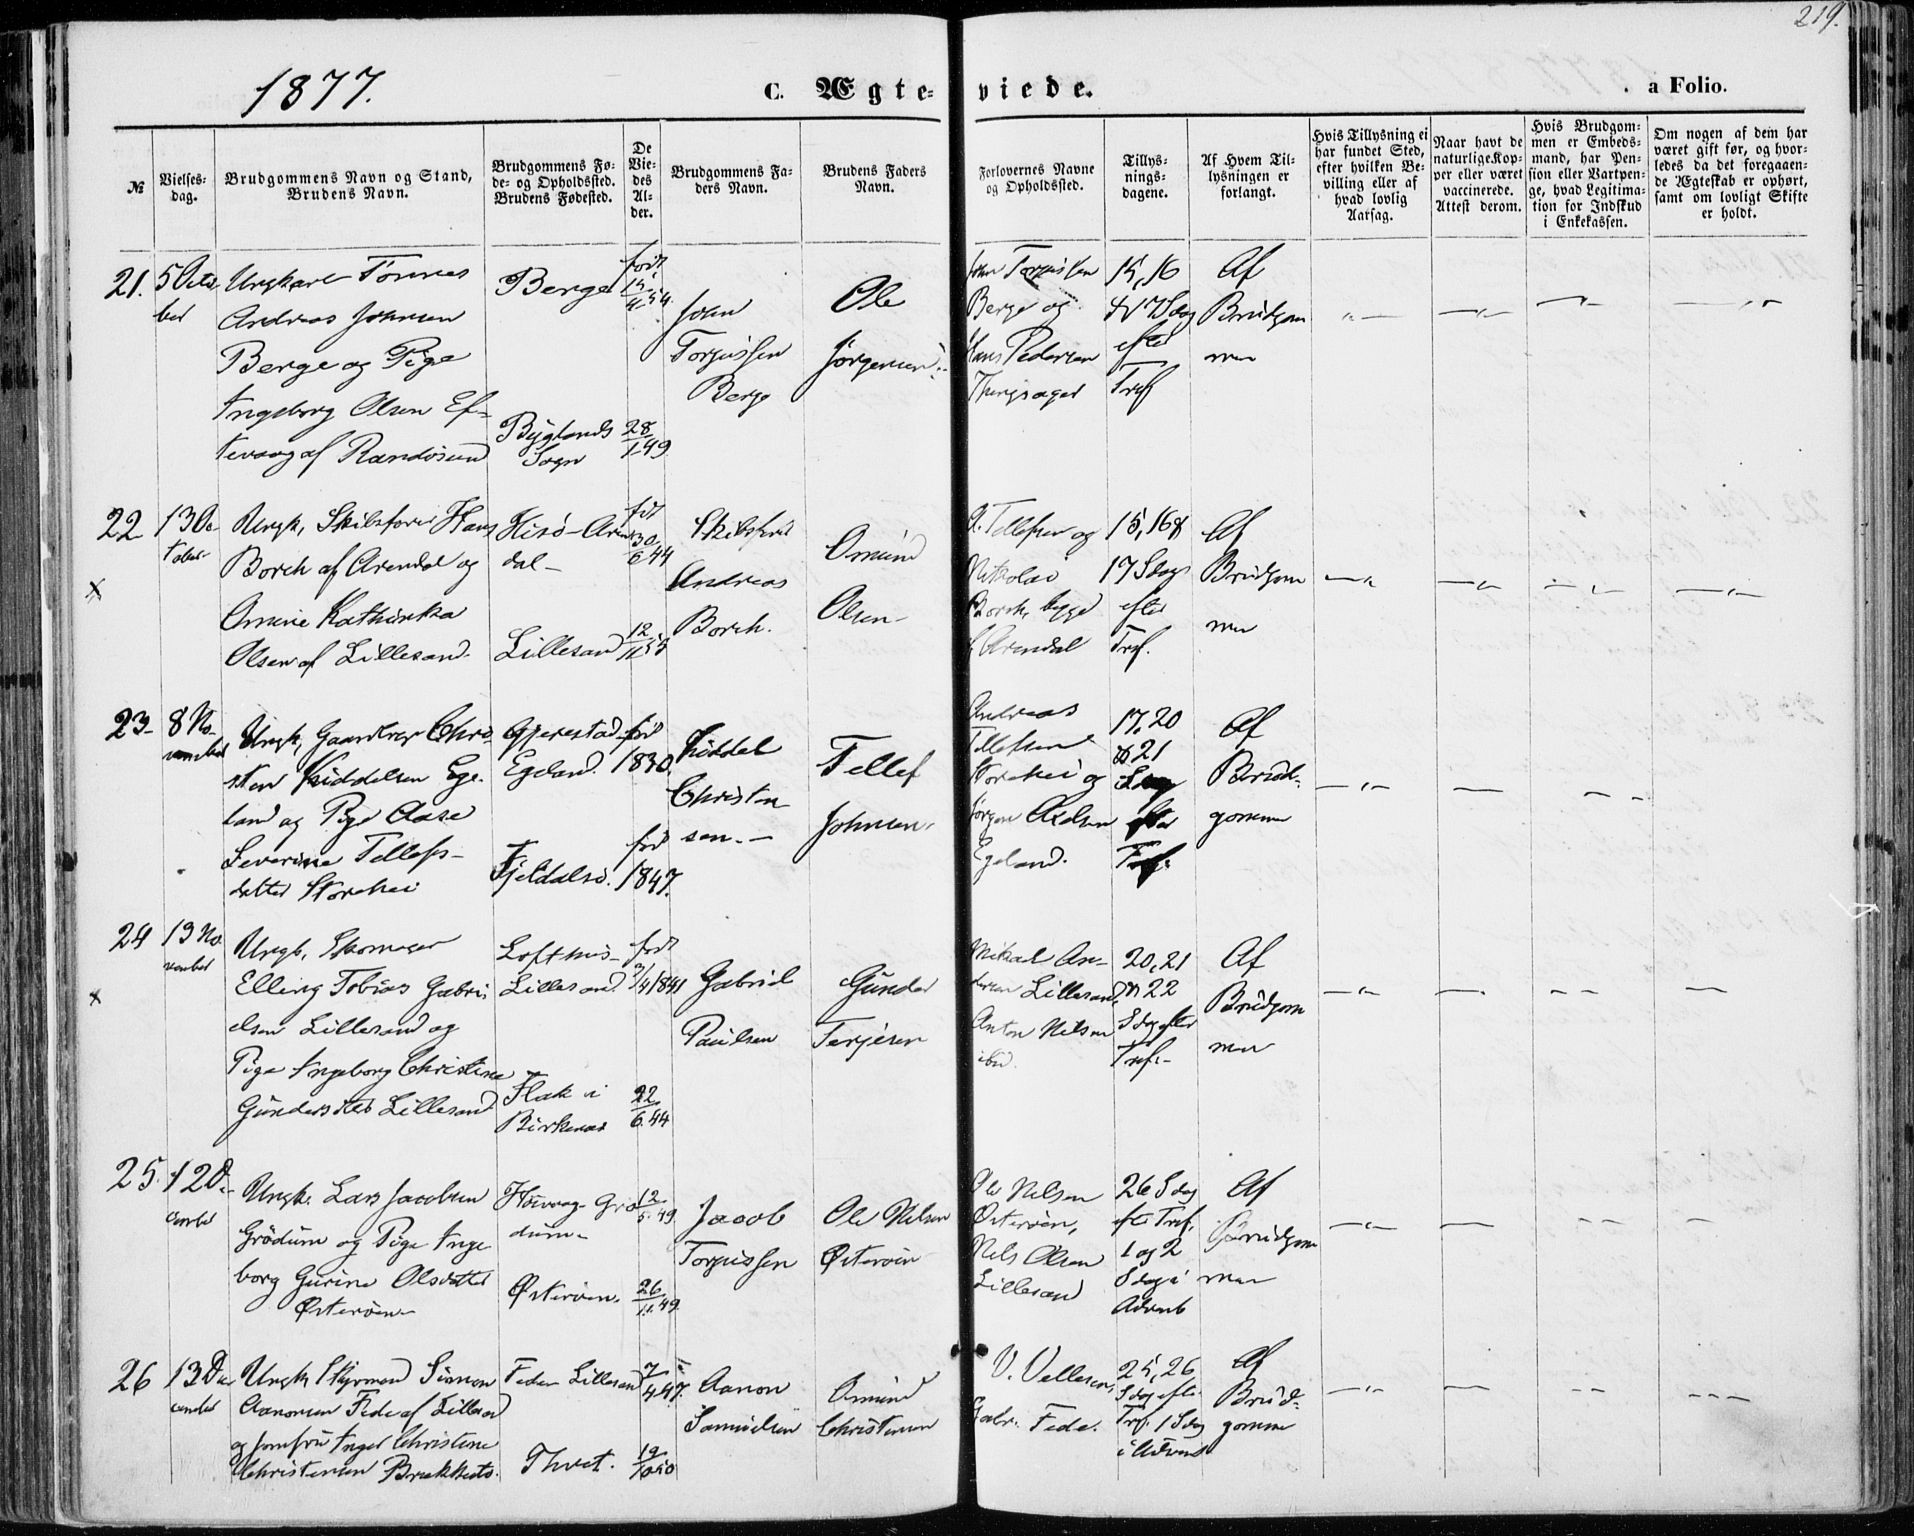 219.
1877.
C. Ægte- viede.
a Folio.
№
Vielses-
dag.
Brudgommens Navn og Stand,
Brudens Navn.
Brudgommens Fø-
de- og Opholdssted.
Brudens Fødested.
De
Vie-
des
Al-
der.
Brudgommens Fa-
ders Navn.
Brudens Faders
Navn.
Forlovernes Navne
og Opholdssted.
Tillys-
nings-
dagene.
Af Hvem Til-
lysningen er
forlangt.
Hvis Tillysning ei
har fundet Sted,
efter hvilken Be-
villing eller af
hvad lovlig
Aarsag.
Naar havt de
naturlige Kop-
per eller været
vaccinerede.
Attest derom.
Hvis Brudgom-
men er Embeds-
mand, har Pen-
sion eller Vartpen-
ge, hvad Legitima-
tion for Indskud
i Enkekassen.
Om nogen af dem har
været gift før, og hvor-
ledes da det foregaaen-
de Ægteskab er ophørt,
samt om lovligt Skifte
er holdt.
21.
5 Octo
ber
Ungkarl Tønnes
Andreas Johnsen
Berge og Pige
Ingeborg Olsen Ef-
tevaag af Randøsund
Berge
Byglands
Sogn
født
15/4 54
28/1 49
John
Torjussen
Berge
Ole
Jørgensen
John Torjussen
Berge og
Hans Pedersen
Thingsager
15, 16
& 17 Sdag
efter
Tref
Af
Brudgom
men
22
13 Oc
tober
Ungk, Skibsfører Hans
Borch af Arendal og
Omine Kathinka
Olsen af Lillesand
Hisø-Aren
dal
Lillesand
født
30/6 44
12/11 55
Skibsfører
Andreas
Borch.
Omund
Olsen
A. Tellefsen og
Nikolai
Borch, begge
af Arendal
15, 16 &
17 Sdag
efter
Tref.
Af
Brudgom
men
23
8 No-
vember
Ungk, Gaardbrger Chri-
sten Kiddelsen Ege-
land og Pige Aase
Severine Tellefs-
datter Storehei
Gjerestad
Egeland.
Fjeldalsø.
født
1830.
født
1847.
Kiddel
Christen
sen.
Tellef
Johnsen.
Andreas
Tellefsen
Storehei og
Jørgen Axelsen
Egeland.
17, 20
& 21
Sdag
efter
Tref.
Af
Brud-
gommen
24
13 No
vember
Ungk, Skomager
Elling Tobias Gabri-
elsen Lillesand og
Pige Ingeborg Christine
Gundersdtr Lillesand
Lofthus-
Lillesand
Flak i
Birkenes
født
3/4 1841
22/6 44
Gabriel
Paulsen
Gunder
Terjesen
Mikal An-
dersen Lillesand
Anton Nilsen
ibid.
20, 21
& 22
Sdag efter
Tref.
Af
Brudgom
men
25.
12 De-
cember
Ungk. Lars Jacobsen
Grødum og Pige Inge
borg Gurine Olsdatter
Østerøen
Høivaag Grø
dum
Østerøen.
12/5 49
26/11 49
Jacob
Torjussen
Ole Nilsen
Østerøen
Ole Nilsen
Østerøen,
Nils Olsen
Lillesand
26 Sdag
efter Tref,
1 og 2
Sdag i
Advent
Af
Brudgom
men
26
13 De
cember
Ungk Styrmand Simon
Aanonsen Fede af Lillesand
og Jomfru Inger Christine
Christensen Brækkestø
Fede Lillesand
Thvet.
7/4 47.
19/10 50
Aanon
Samuelsen
Omund
Christensen
V. Vellesen,
Gabr. Fede.
25, 26
Sdag efter
Tref. 1 Sdag
i Advent
Af
Brud-
gommen